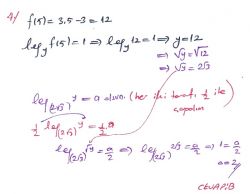 4/ f(5) = 3.5 - 3 = 12
log_y f(5) = 1 ⇒ log_y 12 = 1 ⇒ y = 12
⇒ √y = √12
⇒ √y = 2√3
log_(2√3) y = a olsun. (her iki tarafı 1/2 ile
çarpalım)
1/2 log_(2√3) y = 1/2 . a
log_(2√3) √y = a/2 ⇒ log_(2√3) 2√3 = a/2 ⇒ 1 = a/2
a = 2
CEVAP B